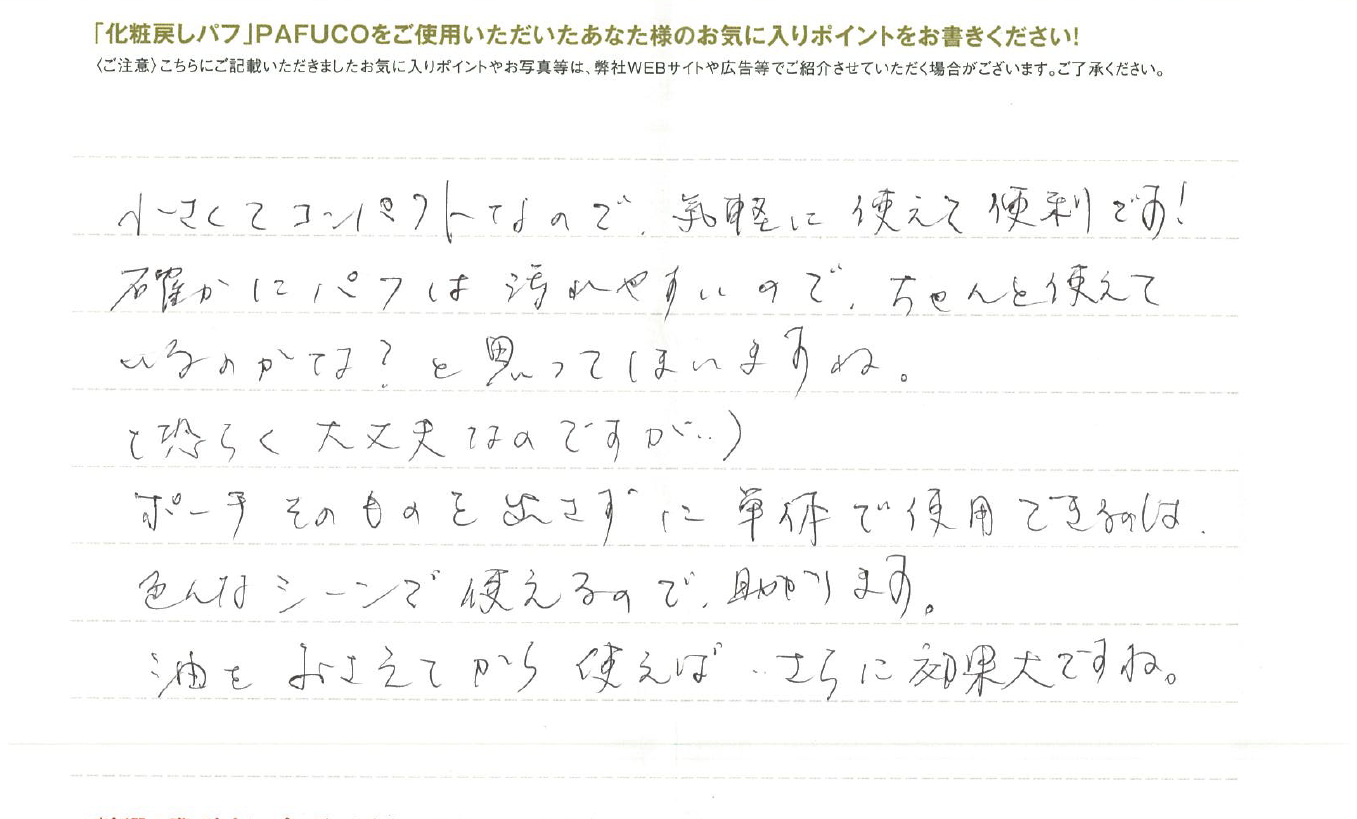 「化粧戻しパフ」PAFUCOをご使用いただいたあなた様のお気に入りポイントをお書きください!
〈ご注意〉こちらにご記載いただきましたお気に入りポイントやお写真等は、弊社WEBサイトや広告等でご紹介させていただく場合がございます。ご了承ください。
小さくてコンパクトなので、気軽に使えて便利です!
確かにパフは汚れやすいので、ちゃんと使えて
いるのかな?と思ってしまいますね。
(恐らく大丈夫なのですが…)
ポーチそのものを出さずに単体で使用できるのは、
色んなシーンで使えるので、助かります。
油をおさえてから使えば…さらに効果大ですね。